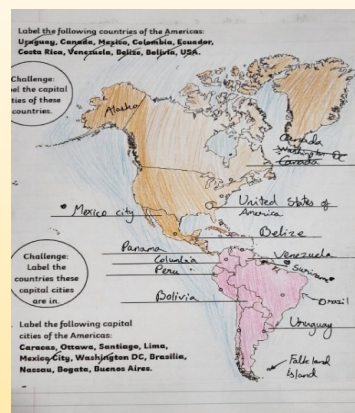 Label the following countries of the Americas:
Uruguay, Canada, Mexico, Colombia, Ecuador,
Costa Rica, Venezuela, Belize, Bolivia, USA.
Challenge:
el the capital
ties of these
countries.
Alaska
Canada
Washington DC
Canada
United States of
America
Mexico city
Belize
Panama
Venezuela
Columbia
Suriname
Peru
Brazil
Bolivia
Uruguay
Falkland
Island
Challenge:
Label the
countries these
capital cities
are in.
Label the following capital
cities of the Americas:
Caracas, Ottawa, Santiago, Lima,
Mexico City, Washington DC, Brasilia,
Nassau, Bogata, Buenos Aires.